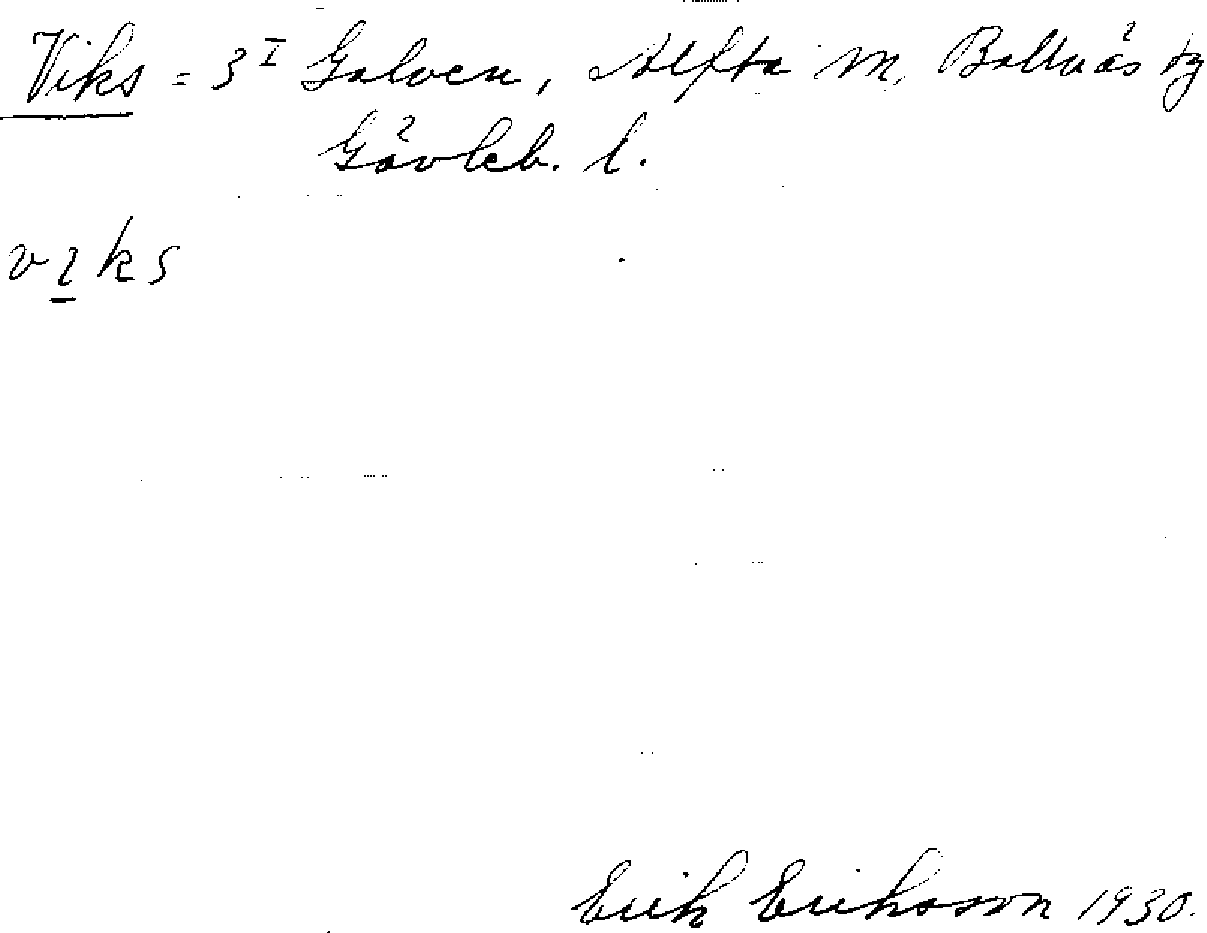 Viks = 3ᴵ Galven, Alfta M, Bollnäs tg
Gävleb. l.
vɩks
Erik Eriksson 1930.